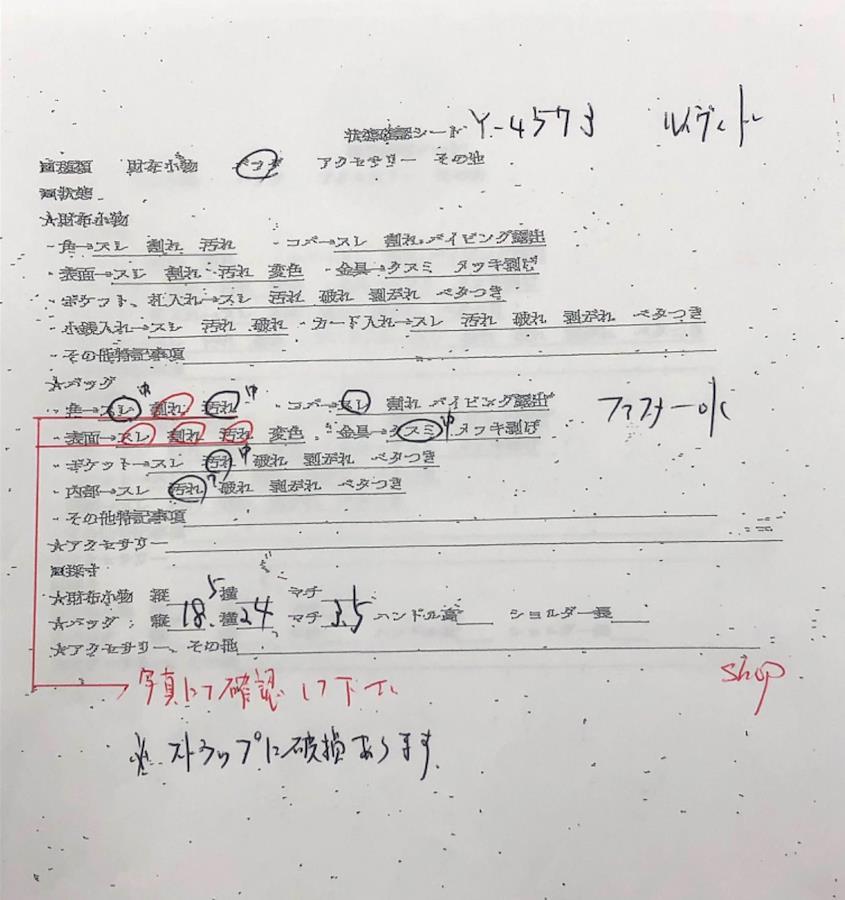 状態確認シート Y-4573 ルイヴィトン
▣種類 財布小物 バッグ アクセサリー その他
▣状態
★財布小物
・角→スレ 割れ 汚れ ・コバ→スレ 割れ パイピング露出
・表面→スレ 割れ 汚れ 変色 ・金具→クスミ メッキ剥げ
・ポケット、札入れ→スレ 汚れ 破れ 剥がれ ベタつき
・小銭入れ→スレ 汚れ 破れ ・カード入れ→スレ 汚れ 破れ 剥がれ ベタつき
・その他特記事項
★バッグ
・角→スレ 中 割れ 汚れ 中 ・コバ→スレ 割れ パイピング露出
・表面→スレ 割れ 汚れ 変色 ・金具→クスミ 中 メッキ剥げ ファスナーok
・ポケット→スレ 汚れ 中 破れ 剥がれ ベタつき
・内部→スレ 汚れ 破れ 剥がれ ベタつき
・その他特記事項
★アクセサリー
▣採寸
★財布小物 縦 横 マチ
★バッグ : 縦 18.5 横 24 マチ 3.5 ハンドル高 ショルダー長
★アクセサリー、その他
写真にて確認して下さい shop
※ストラップに破損あります。